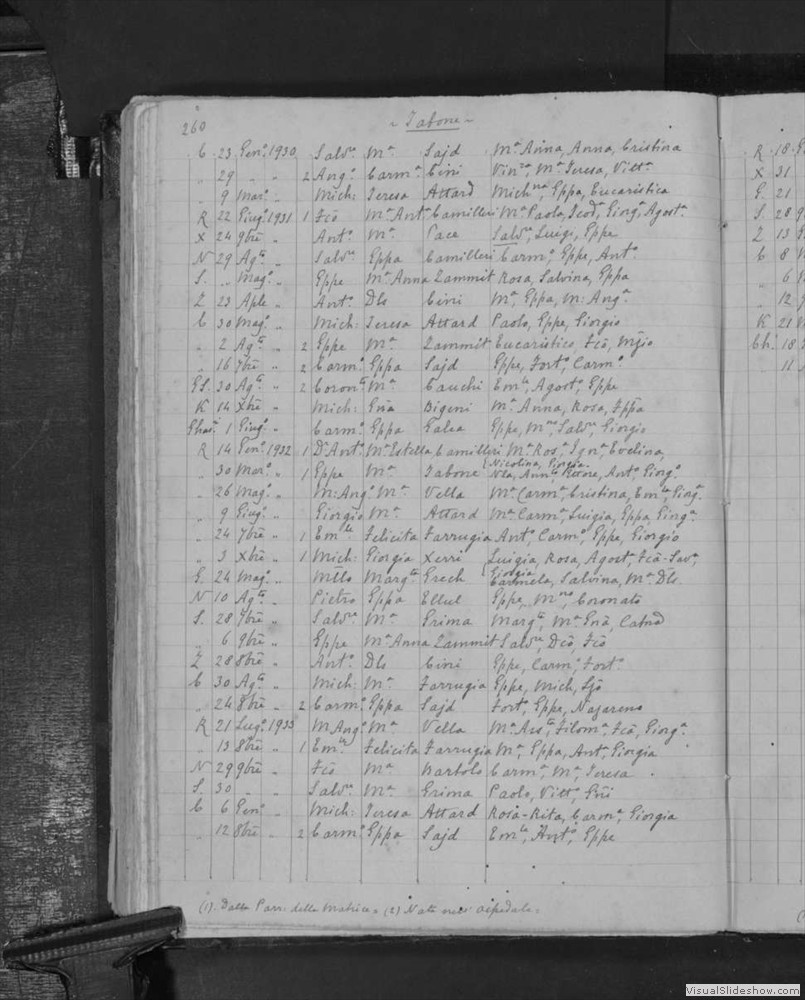 260
~ Tabone ~
C 23 Gen.º 1930 Salv.re M.a Sajd M.a Anna, Anna, Cristina
„ 29 „ „ 2 Ang.º Carm.a Cini Vin.za, M.a Teresa, Vitt.a
„ 9 Mar.º „ Mich: Teresa Attard Mich.na, Eppa, Eucaristica
R 22 Giug.º 1931 1 Fcõ M.a Ant.a Camilleri M.a Paola, Teod, Giorg.a, Agost.a
X 24 9bre „ Ant.º M.a Pace Salv.re, Luigi, Eppe
N 29 Ag.to „ Salv.re Eppa Camilleri Carm.º, Eppe, Ant.º
S. „ Mag.º „ Eppe M.a Anna Zammit Rosa, Salvina, Eppa
Z 23 Aple „ Ant.º Dls Cini M.a, Eppa, M: Ang.a
C 30 Mag.º „ Mich: Teresa Attard Paolo, Eppe, Giorgio
„ 2 Ag.to „ 2 Eppe M.a Zammit Eucaristico, Fcõ,
„ 16 7bre „ 2 Carm.º Eppa Sajd Eppe, Fort.º, Carm.º
GS. 30 Ag.to „ 2 Coron.to M.a Cauchi Em.le, Agost.º, Eppe
K 14 Xbre „ Mich: Gña Bigeni M.a Anna, Rosa,
Ghar. 1 Giug.º „ Carm.º Eppa Galea Eppe, M.no, Salv.re, Giorgio
R 14 Gen.º 1932 1 D.r Ant.º M.a Estella Camilleri M.a Ros.a, Ign.a, Evelina,
Nicolina, Giorgia
„ 30 Mar.º „ 1 Eppe M.a Tabone Nla, Ann.le, Ettore, Ant.º, Giorg.º
„ 26 Mag.º „ M: Ang.º M.a Vella M.a Carm.a, Cristina, Em.la, Giorg.a
„ 9 Giug.º „ Giorgio M.a Attard M.a Carm.a, Luigia, Eppa, Giorg.a
„ 24 7bre „ 1 Em.le Felicita Farrugia Ant.º, Carm.º, Eppe, Giorgio
„ 3 Xbre „ 1 Mich: Giorgia Xerri Luigia, Rosa, Agost.a, Fcã-Sav.a,
Giorgia
G. 24 Mag.º „ Mllo Marg.ta Grech Carmela, Salvina, M.a Dls
N 10 Ag.to „ Pietro Eppa Ellul Eppe, M.no, Coronato
S. 28 7bre „ Salv.re M.a Grima Marg.ta, M.a Gña, Catnã
„ 6 9bre „ Eppe M.a Anna Zammit Salv.re, Dcõ, Fcõ
Z 28 8bre „ Ant.º Dls Cini Eppe, Carm.º, Fort.º
C 30 Ag.to „ Mich: M.a Farrugia Eppe, Mich,
„ 24 8bre „ 2 Carm.º Eppa Sajd Fort.º, Eppe, Nazareno
R 21 Lug.º 1933 M. Ang.º M.a Vella M.a Ass.ta, Filom.a, Fcã, Giorg.a
„ 13 8bre „ 1 Em.le Felicita Farrugia M.a, Eppa, Ant.a, Giorgia
N 29 9bre „ Fcõ M.a Bartolo Carm.a, M.a, Teresa
S. 30 „ „ Salv.re M.a Grima Paolo, Vitt.º,
C 6 Gen.º „ Mich: Teresa Attard Rosa-Rita, Carm.a, Giorgia
„ 12 8bre „ 2 Carm.º Eppa Sajd Em.le, Ant.º, Eppe
(1). Dalla Parr: della Matrice = (2) Nato nell' Ospedale =
R 18
X 31
G. 21
S. 28
Z 13
C 8
„ 6
„ 12
K 21
Gh. 18
11
VisualSlideshow.com